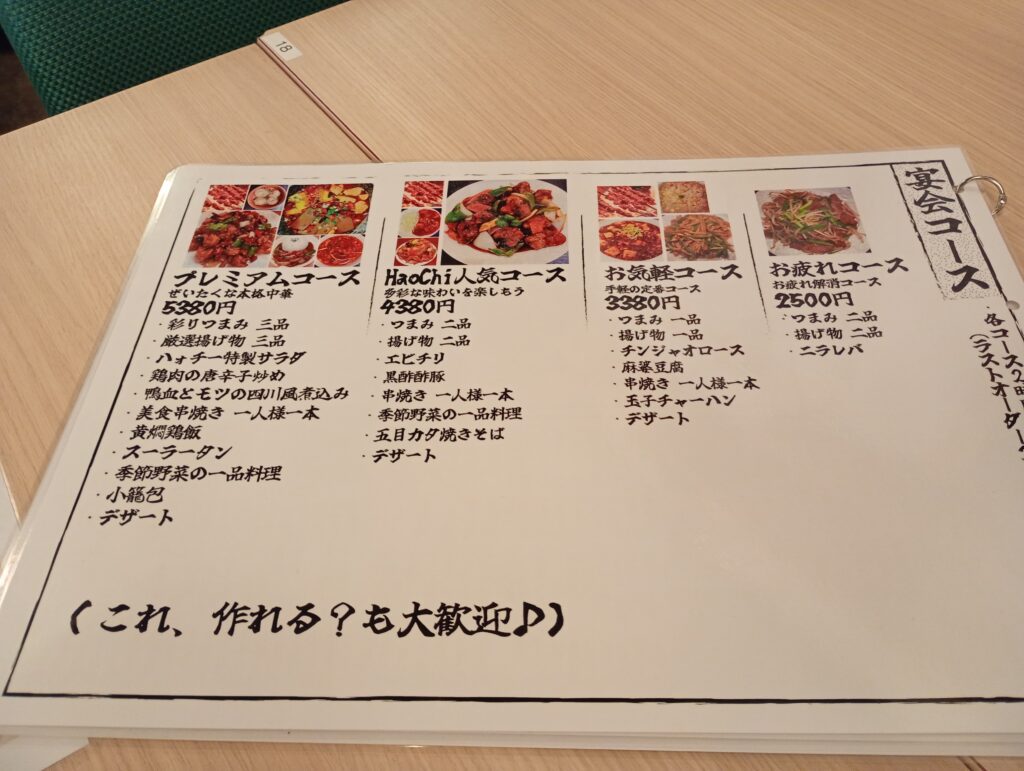 18
宴会コース
各コース2時
(ラストオーダー
プレミアムコース
ぜいたくな本格中華
5380円
・彩りつまみ 三品
・厳選揚げ物 三品
・ハオチー特製サラダ
・鶏肉の唐辛子炒め
・鴨血とモツの四川風煮込み
・美食串焼き 一人様一本
・黄燜鶏飯
・スーラータン
・季節野菜の一品料理
・小籠包
・デザート
HaoChi人気コース
多彩な味わいを楽しもう
4380円
・つまみ 二品
・揚げ物 二品
・エビチリ
・黒酢酢豚
・串焼き 一人様一本
・季節野菜の一品料理
・五目カタ焼きそば
・デザート
お気軽コース
手軽の定番コース
3380円
・つまみ 一品
・揚げ物 一品
・チンジャオロース
・麻婆豆腐
・串焼き 一人様一本
・玉子チャーハン
・デザート
お疲れコース
お疲れ解消コース
2500円
・つまみ 二品
・揚げ物 二品
・ニラレバ
(これ、作れる?も大歓迎♪)